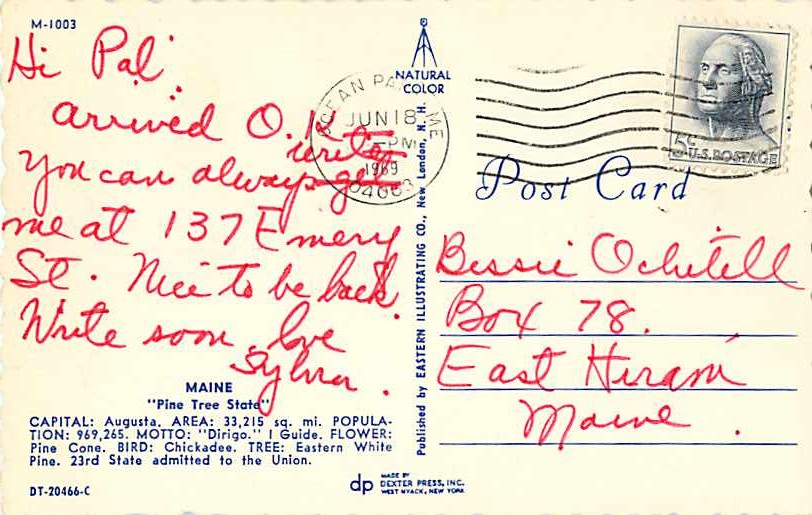 M-1003
Hi Pal.
arrived O.K.
write
you can always get
me at 137 Emery
St. Nice to be back.
Write soon. love
Sylvia.
MAINE
"Pine Tree State"
CAPITAL: Augusta. AREA: 33,215 sq. mi. POPULA-
TION: 969,265. MOTTO: "Dirigo." I Guide. FLOWER:
Pine Cone. BIRD: Chickadee. TREE: Eastern White
Pine. 23rd State admitted to the Union.
DT-20466-C
NATURAL
COLOR
OCEAN PARK, ME
JUN 18
PM
1969
04063
5c
U.S. POSTAGE
Post Card
Published by EASTERN ILLUSTRATING CO., New London, N. H.
Bessie Ochitell
Box 78.
East Hiram
Maine.
dp
MADE BY
DEXTER PRESS, INC.
WEST NYACK, NEW YORK